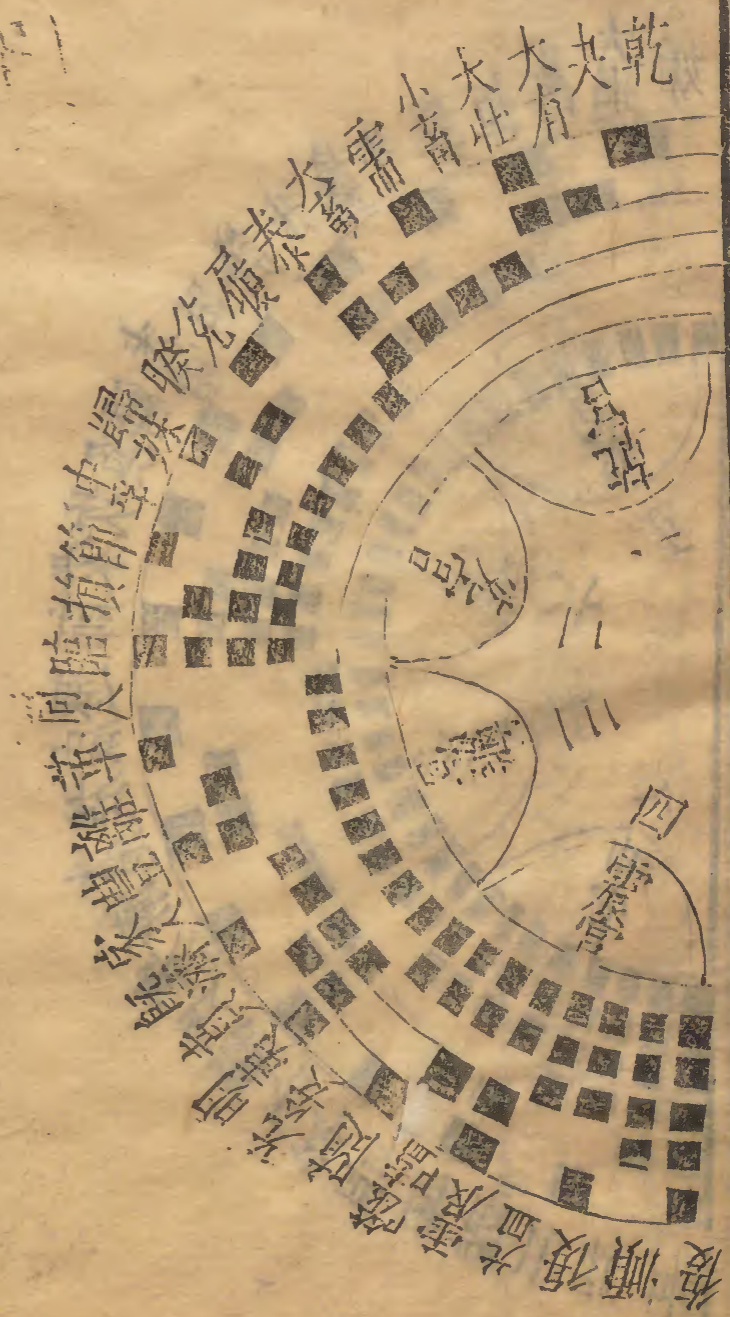 乾
夬
大有
大壯
小畜
需
大畜
泰
兌
睽
歸妹
中孚
節
損
臨
同人
革
離
豐
家人
旣濟
明夷
无妄
隨
噬嗑
震
頤
復
一
二
三
四
震宮